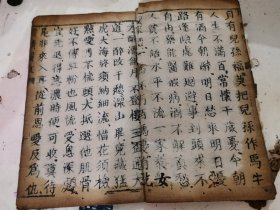 自有兒孫福莫把兒孫作馬牛
人生不滿百常懷千歲憂今朝
有酒今朝醉明日愁來明日憂
路逢險處難迴避事到頭來不
藥能醫假病酒不解真愁
人貧不語水平不流一家養女
酌酒無月不登樓三盃
道一醉改千愁深山畢竟藏猛
虎大海終須納細流惜花須檢
點愛月不梳頭大抵選他肌骨
好不傅紅粉也風流受恩深處
宜先退得意濃時便可收莫待
是非來入耳從前恩愛反為仇